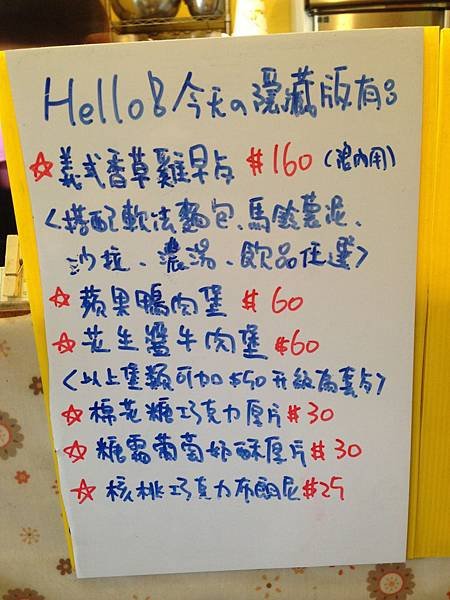 Hello! 今天の隱藏版有:
☆義式香草雞早点 $160 (限內用)
<搭配軟法麵包、馬鈴薯泥、
沙拉、濃湯、飲品任選>
☆蘋果鴨肉堡 $60
☆花生醬牛肉堡 $60
<以上堡類可加$50升級為套餐>
☆棉花糖巧克力厚片$30
☆糖霜葡萄奶酥厚片$30
☆核桃巧克力布朗尼$25